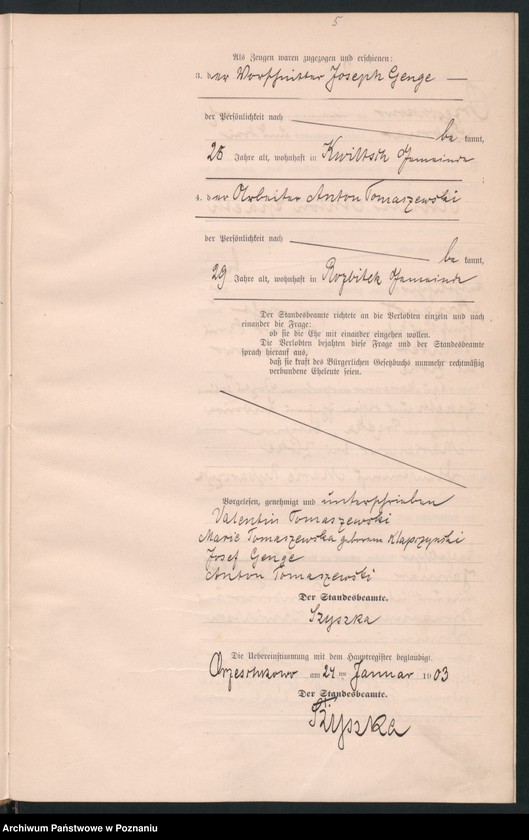 5
Als Zeugen waren zugezogen und erschienen:
3. der Vorschnitter Joseph Genge —
der Persönlichkeit nach be kannt,
26 Jahre alt, wohnhaft in Kwiltsch Gemeinde
4. der Arbeiter Anton Tomaszewski
der Persönlichkeit nach be kannt,
29 Jahre alt, wohnhaft in Rozbitek Gemeinde
Der Standesbeamte richtete an die Verlobten einzeln und nach
einander die Frage:
ob sie die Ehe mit einander eingehen wollen.
Die Verlobten bejahten diese Frage und der Standesbeamte
sprach hierauf aus,
daß sie kraft des Bürgerlichen Gesetzbuchs nunmehr rechtmäßig
verbundene Eheleute seien.
Vorgelesen, genehmigt und unterschrieben
Valentin Tomaszewski
Marie Tomaszewska geborene Klapczynski
Josef Genge
Anton Tomaszewski
Der Standesbeamte.
Szyszka
Die Uebereinstimmung mit dem Hauptregister beglaubigt
Orzeschkowo am 24 ten Januar 1903
Der Standesbeamte.
Szyszka
Archiwum Państwowe w Poznaniu